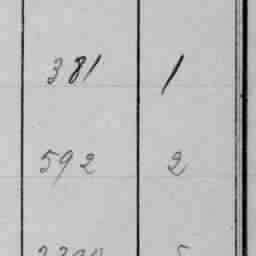 381 1
592 2